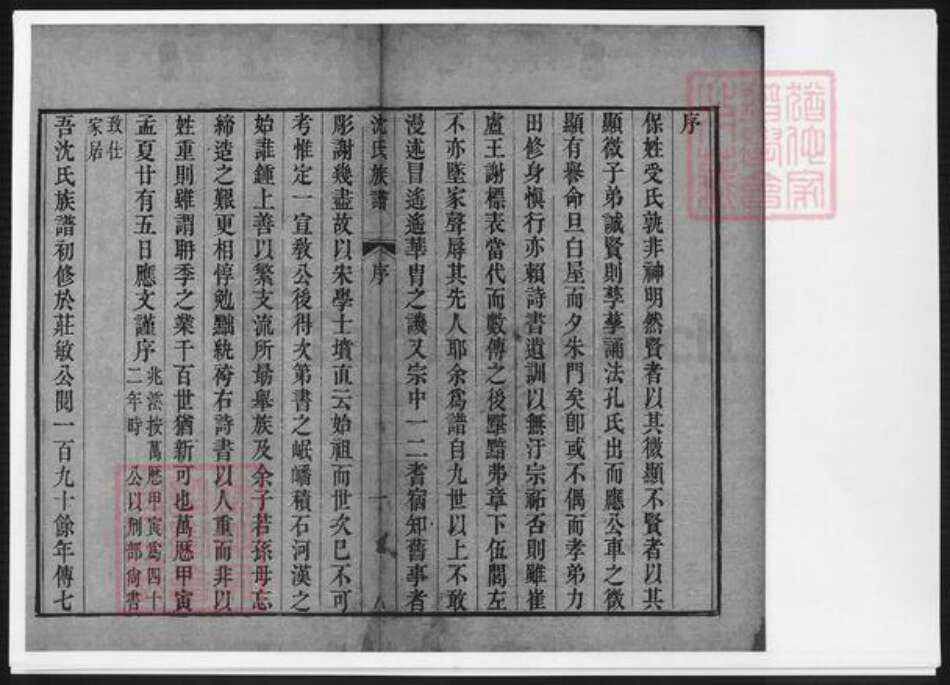 序
保姓受氏孰非神明然賢者以其微顯不賢者以其
顯微子弟誠賢則孳孳誦法孔氏出而應公車之徵
顯有譽命旦白屋而夕朱門矣卽或不偶而孝弟力
田修身愼行亦賴詩書遺訓以無汙宗祏否則雖崔
盧王謝標表當代而數傳之後羣黯弗章下伍閭左
不亦墜家聲辱其先人耶余爲譜自九世以上不敢
漫述冒遙遙華胄之譏又宗中一二耆宿知舊事者
沈氏族譜 序 一
彫謝幾盡故以宋學士墳直云始祖而世次已不可
考惟定一宣敎公後得次第書之岷嶓積石河漢之
始誰鍾上善以繁支流所勗舉族及余子若孫毋忘
締造之艱更相惇勉黜紈袴右詩書以人重而非以
姓重則雖謂聃季之業千百世猶新可也萬厯甲寅
孟夏廿有五日應文謹序 兆澐按萬厯甲寅爲四十
二年時 公以刑部尙書
致仕
家居
吾沈氏族譜初修於莊敏公閱一百九十餘年傳七